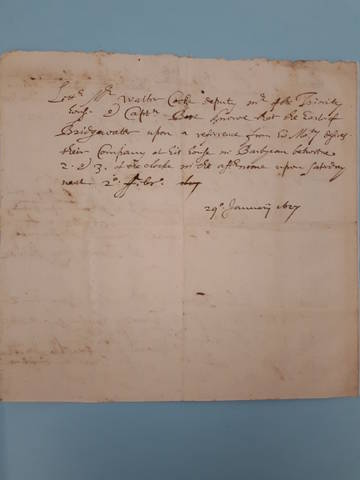 Lett Mr Walter Cocke deputy mr of the Trinity
house & Captn Best knowe that the Earle of
Bridgewater upon a reference from his Maty desires
their Company at his house in Barbican betwene
2. & 3. of the clocke in the afternoone upon Saturday
next 2o. Febr.
29o January 1627